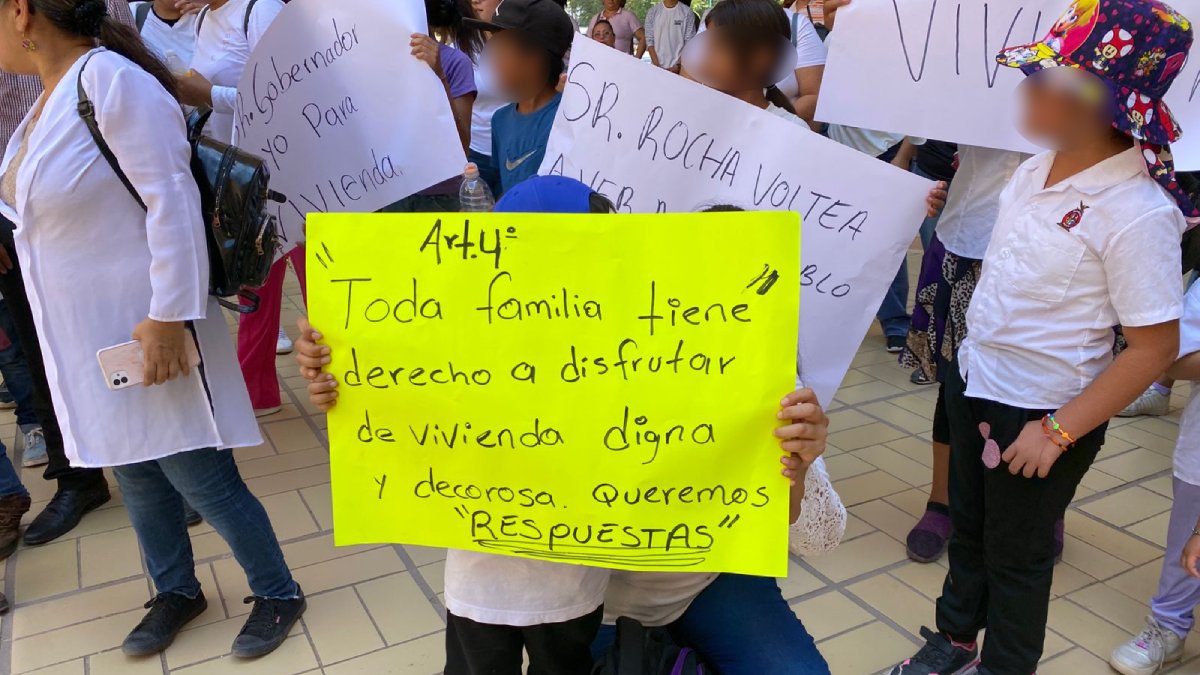 Sr. Gobernador
yo Para
Vivienda.
SR. ROCHA VOLTEA
A VER A
BLO
VIVI
Art. 4º
"Toda familia tiene"
derecho a disfrutar
de vivienda digna
y decorosa. Queremos
"RESPUESTAS"